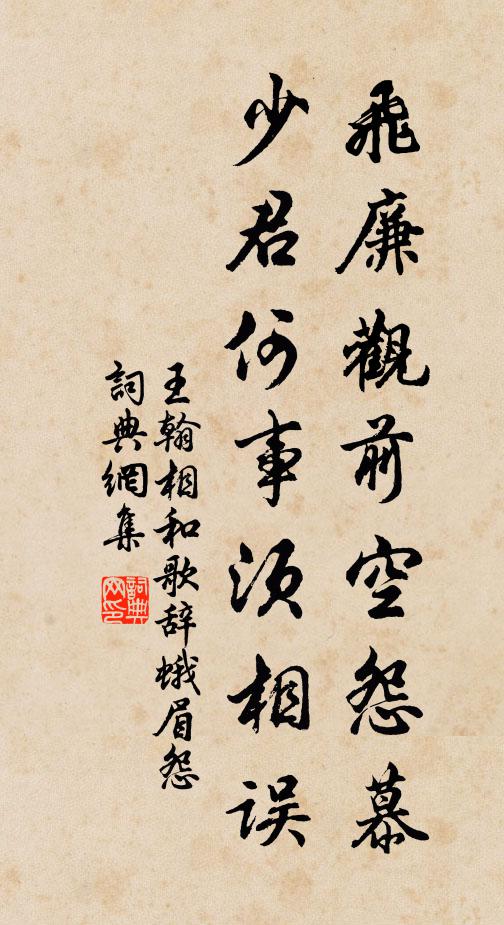 飛廉觀前空怨慕
少君何事須相误
王翰相和歌辞蛾眉怨
詞典網集
詞典網印